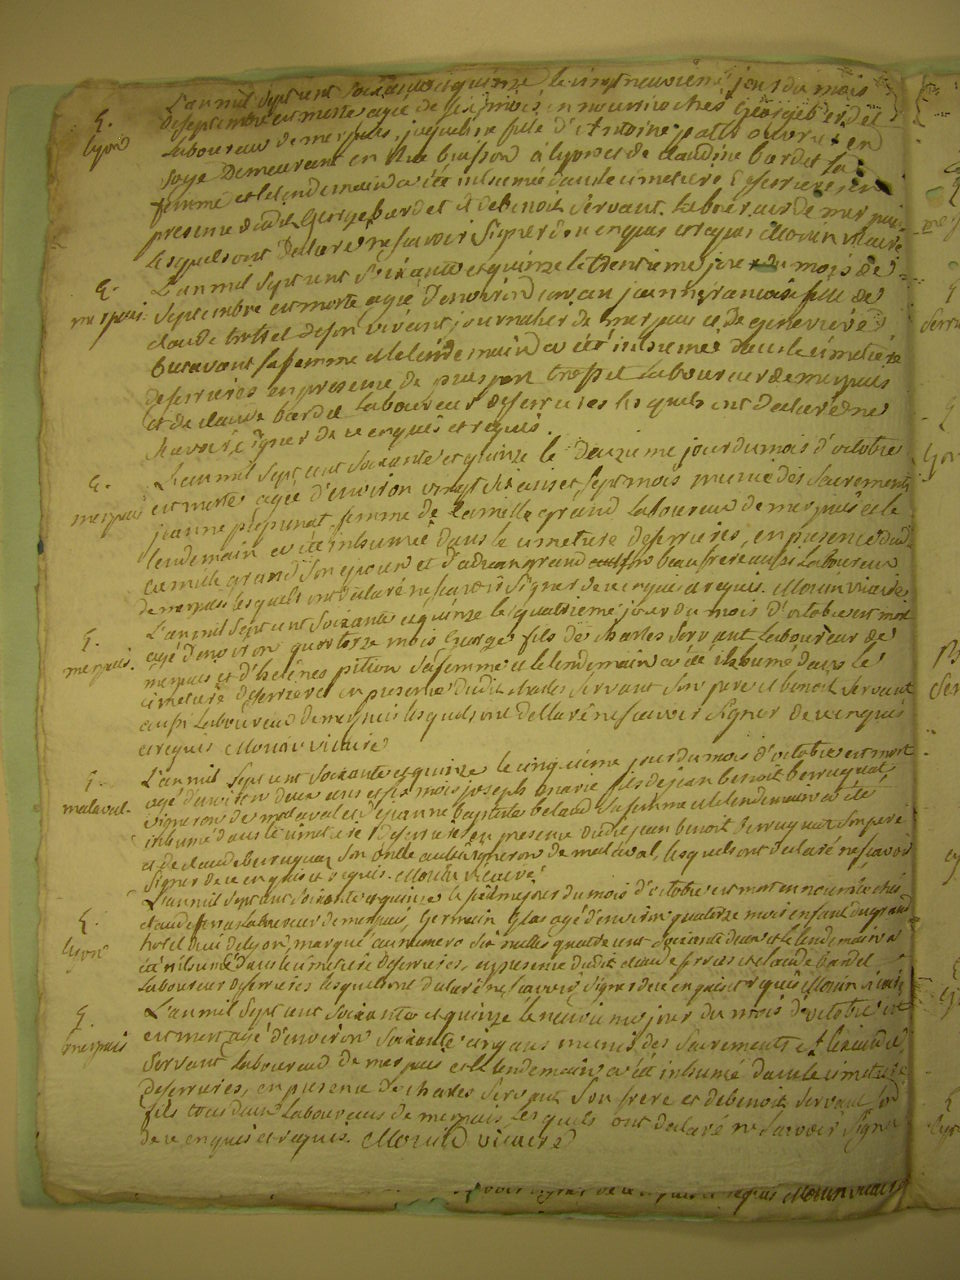 L'an mil sept cent soixante et quinze le vingt neuvieme jour du mois
de septembre est morte agée de six mois en nourrice chés George bardet
G.
lyon
laboureur de merpuis, jaqueline fille d'Antoine ouvrier en
soye demeurant en rue buisson a lyon et de claudine bardet sa
femme et le lendemain a été inhumée dans le cimetiere deferrieres en
presence dudit George bardet et de benoit Servant laboureur de merpuis
lesquels ont declaré ne scavoir signer de ce enquis et requis Morin vicaire
L'an mil sept cent soixante et quinze le trentieme jour du mois de
G.
merpuis
septembre est morte agée d'environ un an jeanne francoise fille de
claude trosset de son vivant journalier de merpuis et de genevieve
butavant sa femme et le lendemain a été inhumée dans le cimetiere
deferrieres en presence de trosset laboureur de merpuis
et de claude bardet laboureur deferrieres lesquels ont declaré ne
scavoir signer de ce enquis et requis.
L'an mil sept cent soixante et quinze le deuzieme jour du mois d'octobre
G.
merpuis
est morte agée d'environ vingt six ans et sept mois munie des sacrements
jeanne femme de camille grand laboureur de merpuis et le
lendemain a été inhumée dans le cimetiere deferrieres, en presence dudit
camille grand son epoux et d'adrian grand son beau frere aussi laboureur
de merpuis lesquels ont declaré ne scavoir signer de ce enquis et requis. Morin vicaire
L'an mil sept cent soixante et quinze le quatrieme jour du mois d'octobre est mort
G.
merpuis.
agé d'environ quatorze mois George fils de charles Servant laboureur de
merpuis et d'helenes pition sa femme et le lendemain a été inhumé dans le
cimetiere deferrieres en presence dudit charles Servant son pere et benoit Servant
aussi laboureur de merpuis lesquels ont declaré ne scavoir signer de ce enquis
et requis Morin vicaire
L'an mil sept cent soixante et quinze le cinquieme jour du mois d'octobre est mort
G.
malaval.
agé d'environ deux ans et six mois joseph marie fils de jean benoit berruquat
vigneron de malaval et de jeanne baptiste belaud sa femme et le lendemain a été
inhumé dans le cimetiere deferrieres en presence dudit jean benoit berruquat son pere
et de claude berruquat son oncle aussi vigneron de malaval, lesquels ont declaré ne scavoir
signer de ce enquis et requis. Morin vicaire
L'an mil sept cent soixante et quinze le septiemejour du mois d'octobre est mort en nourrice chés
G.
lyon
claude laboureur de merpuis, Germain Glas agé d'environ quatorze mois enfant du grand
hotel dieu de lyon, marqué au numero six milles quatre cent soixante deux et le lendemain a
été inhumé dans le cimetiere deferrieres, en presence dudit claude et claude bardet
laboureur deferrieres lesquels ont declaré ne scavoir signer de ce enquis et requis Morin vicaire
L'an mil sept cent soixante et quinze le neuvieme jour du mois d'octobre est
G.
merpuis
est mort agé d'environ soixante cinq ans munis des sacrements Alexandre
Servant laboureur de merpuis et le lendemain a été inhumé dans le cimetiere
deferrieres, en presence de charles Servant son frere et de benoit Servant son
fils tous deux laboureurs de merpuis lesquels ont declaré ne scavoir signer
de ce enquis et requis. Morin vicaire
scavoir signer de ce enquis et requis Morin vicaire